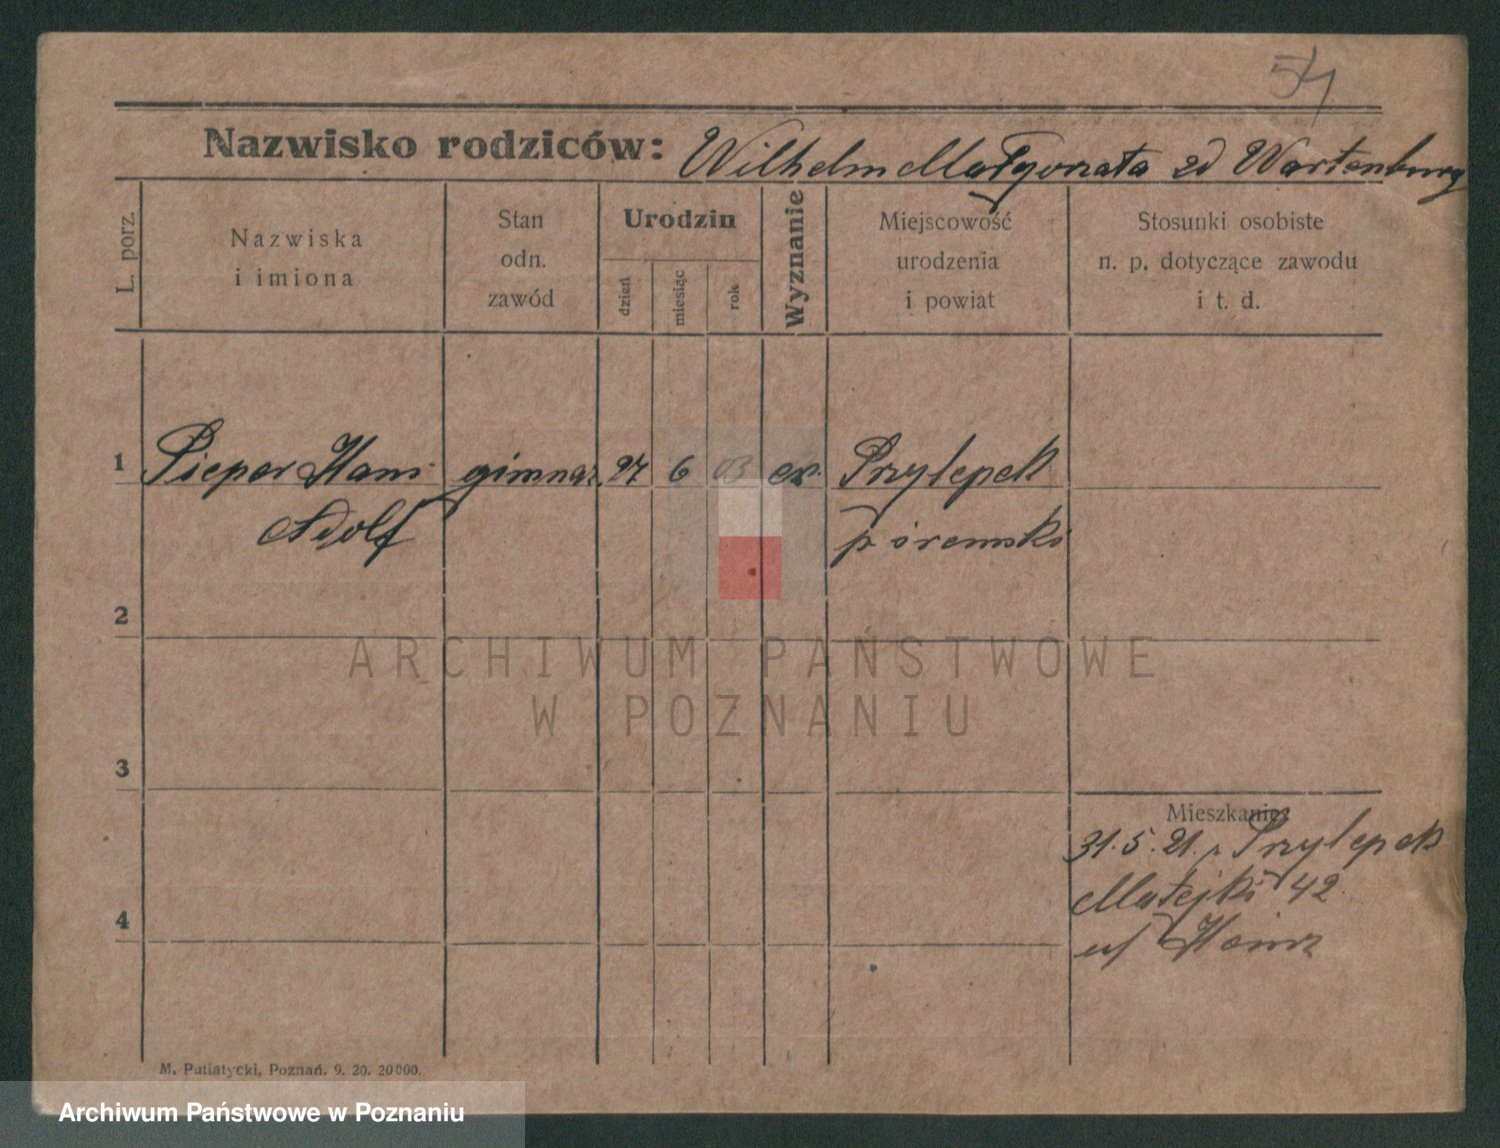 54
Nazwisko rodziców: Wilhelm Małgorzata zd Wartenburg
L. porz.
Nazwiska
i imiona
Stan
odn.
zawód
Urodzin
dzień
miesiąc
rok
Wyznanie
Miejscowość
urodzenia
i powiat
Stosunki osobiste
n. p. dotyczące zawodu
i t. d.
1 Pieper Hans gimnaz. 27 6 03 ew. Przylepek
Adolf p śremski
2
ARCHIWUM PAŃSTWOWE
W POZNANIU
3
Mieszkanie:
31.5.21. z Przylepek
Matejki 42
u/ Heinz
4
M. Putiatycki, Poznań. 9. 20. 20000.
Archiwum Państwowe w Poznaniu